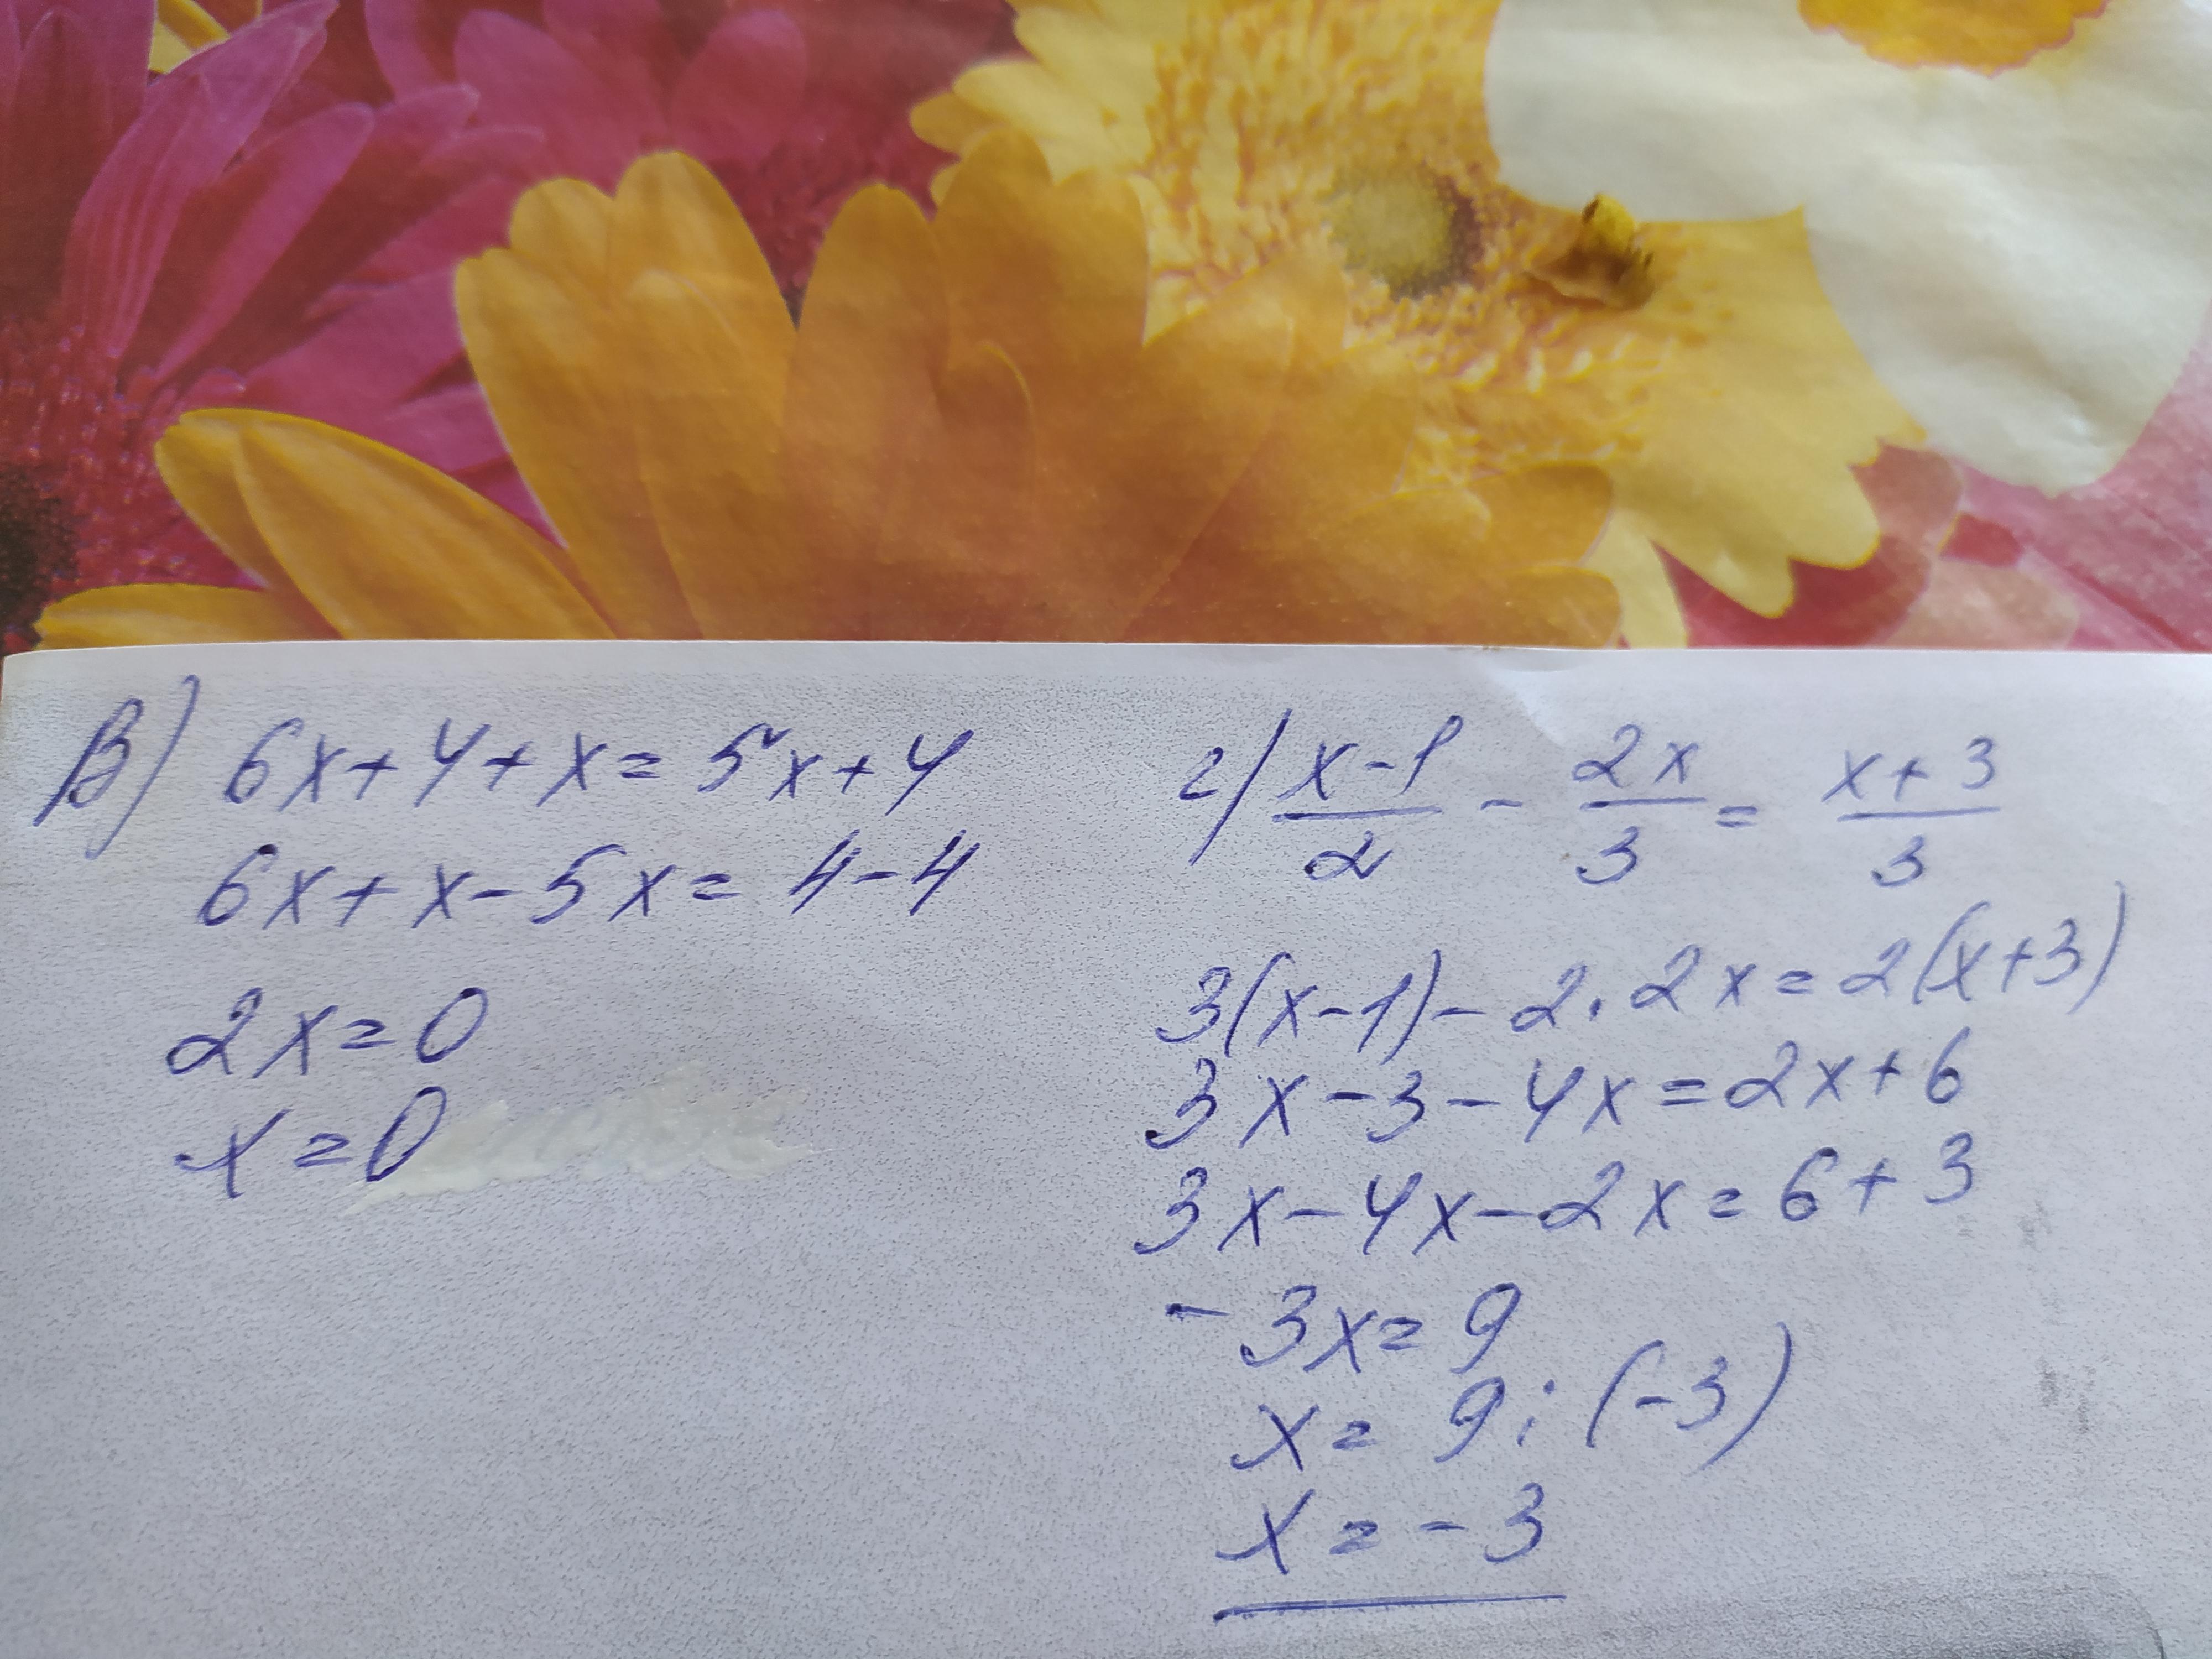 в) 6x+4+x=5x+4
6x+x-5x=4-4
2x=0
x=0
г) \frac{x-1}{2} - \frac{2x}{3} = \frac{x+3}{3}
3(x-1)-2·2x=2(x+3)
3x-3-4x=2x+6
3x-4x-2x=6+3
-3x=9
x=9:(-3)
x=-3